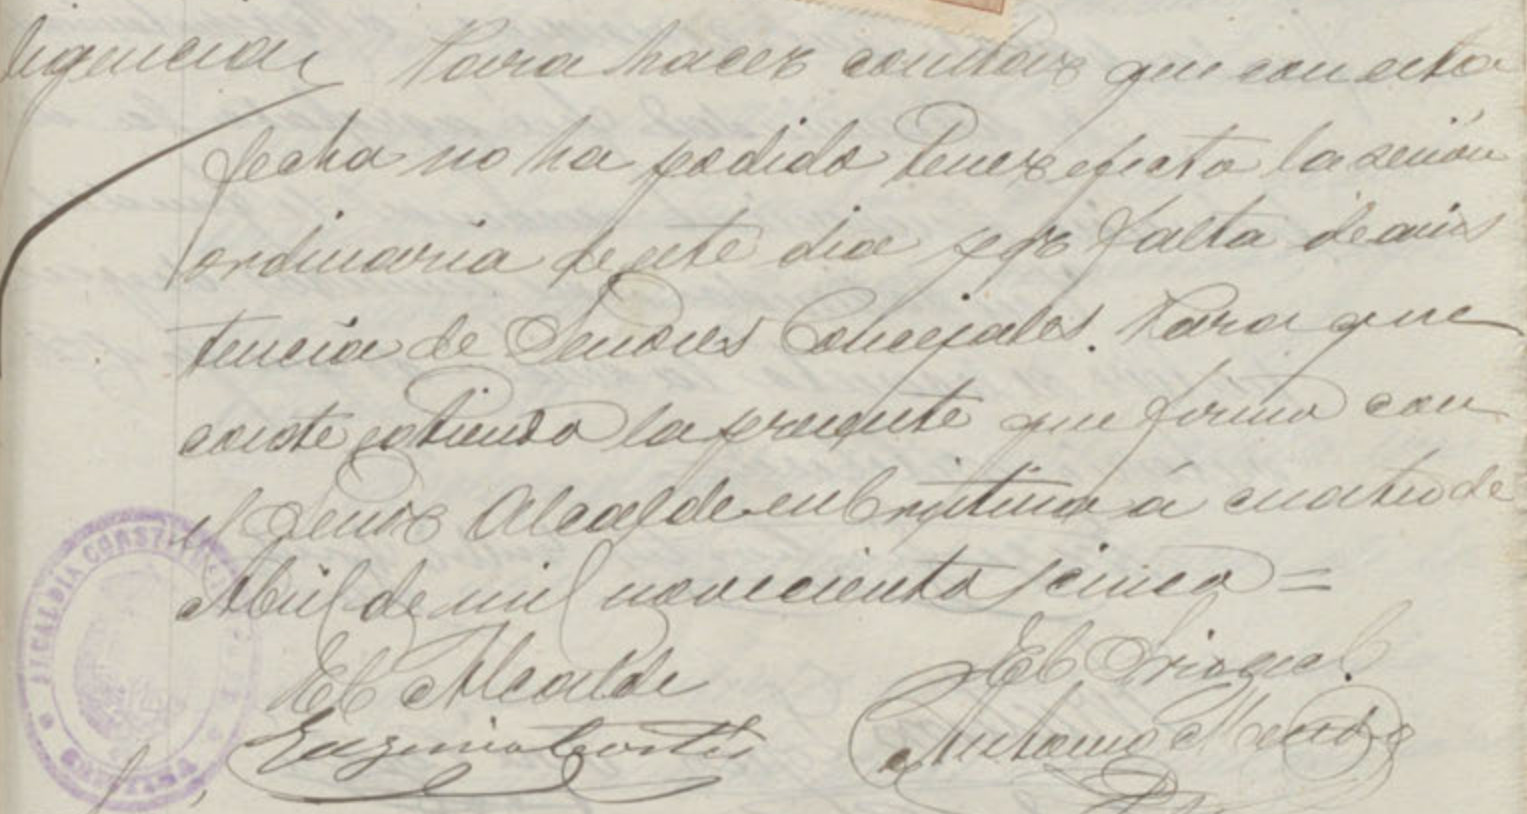 ligencia Para hacer constar que con esta
fecha no ha podido tener efecto la sesión
ordinaria de este dia por falta de asis
tencia de Señores Concejales. Para que
conste extiendo la presente que firmo con
el Señor Alcalde en á cuatro de
Abril de mil novecientos cinco =
El Alcalde
El
Eugenio Cortés
Antonio
ALCALDIA CONSTITUCIONAL